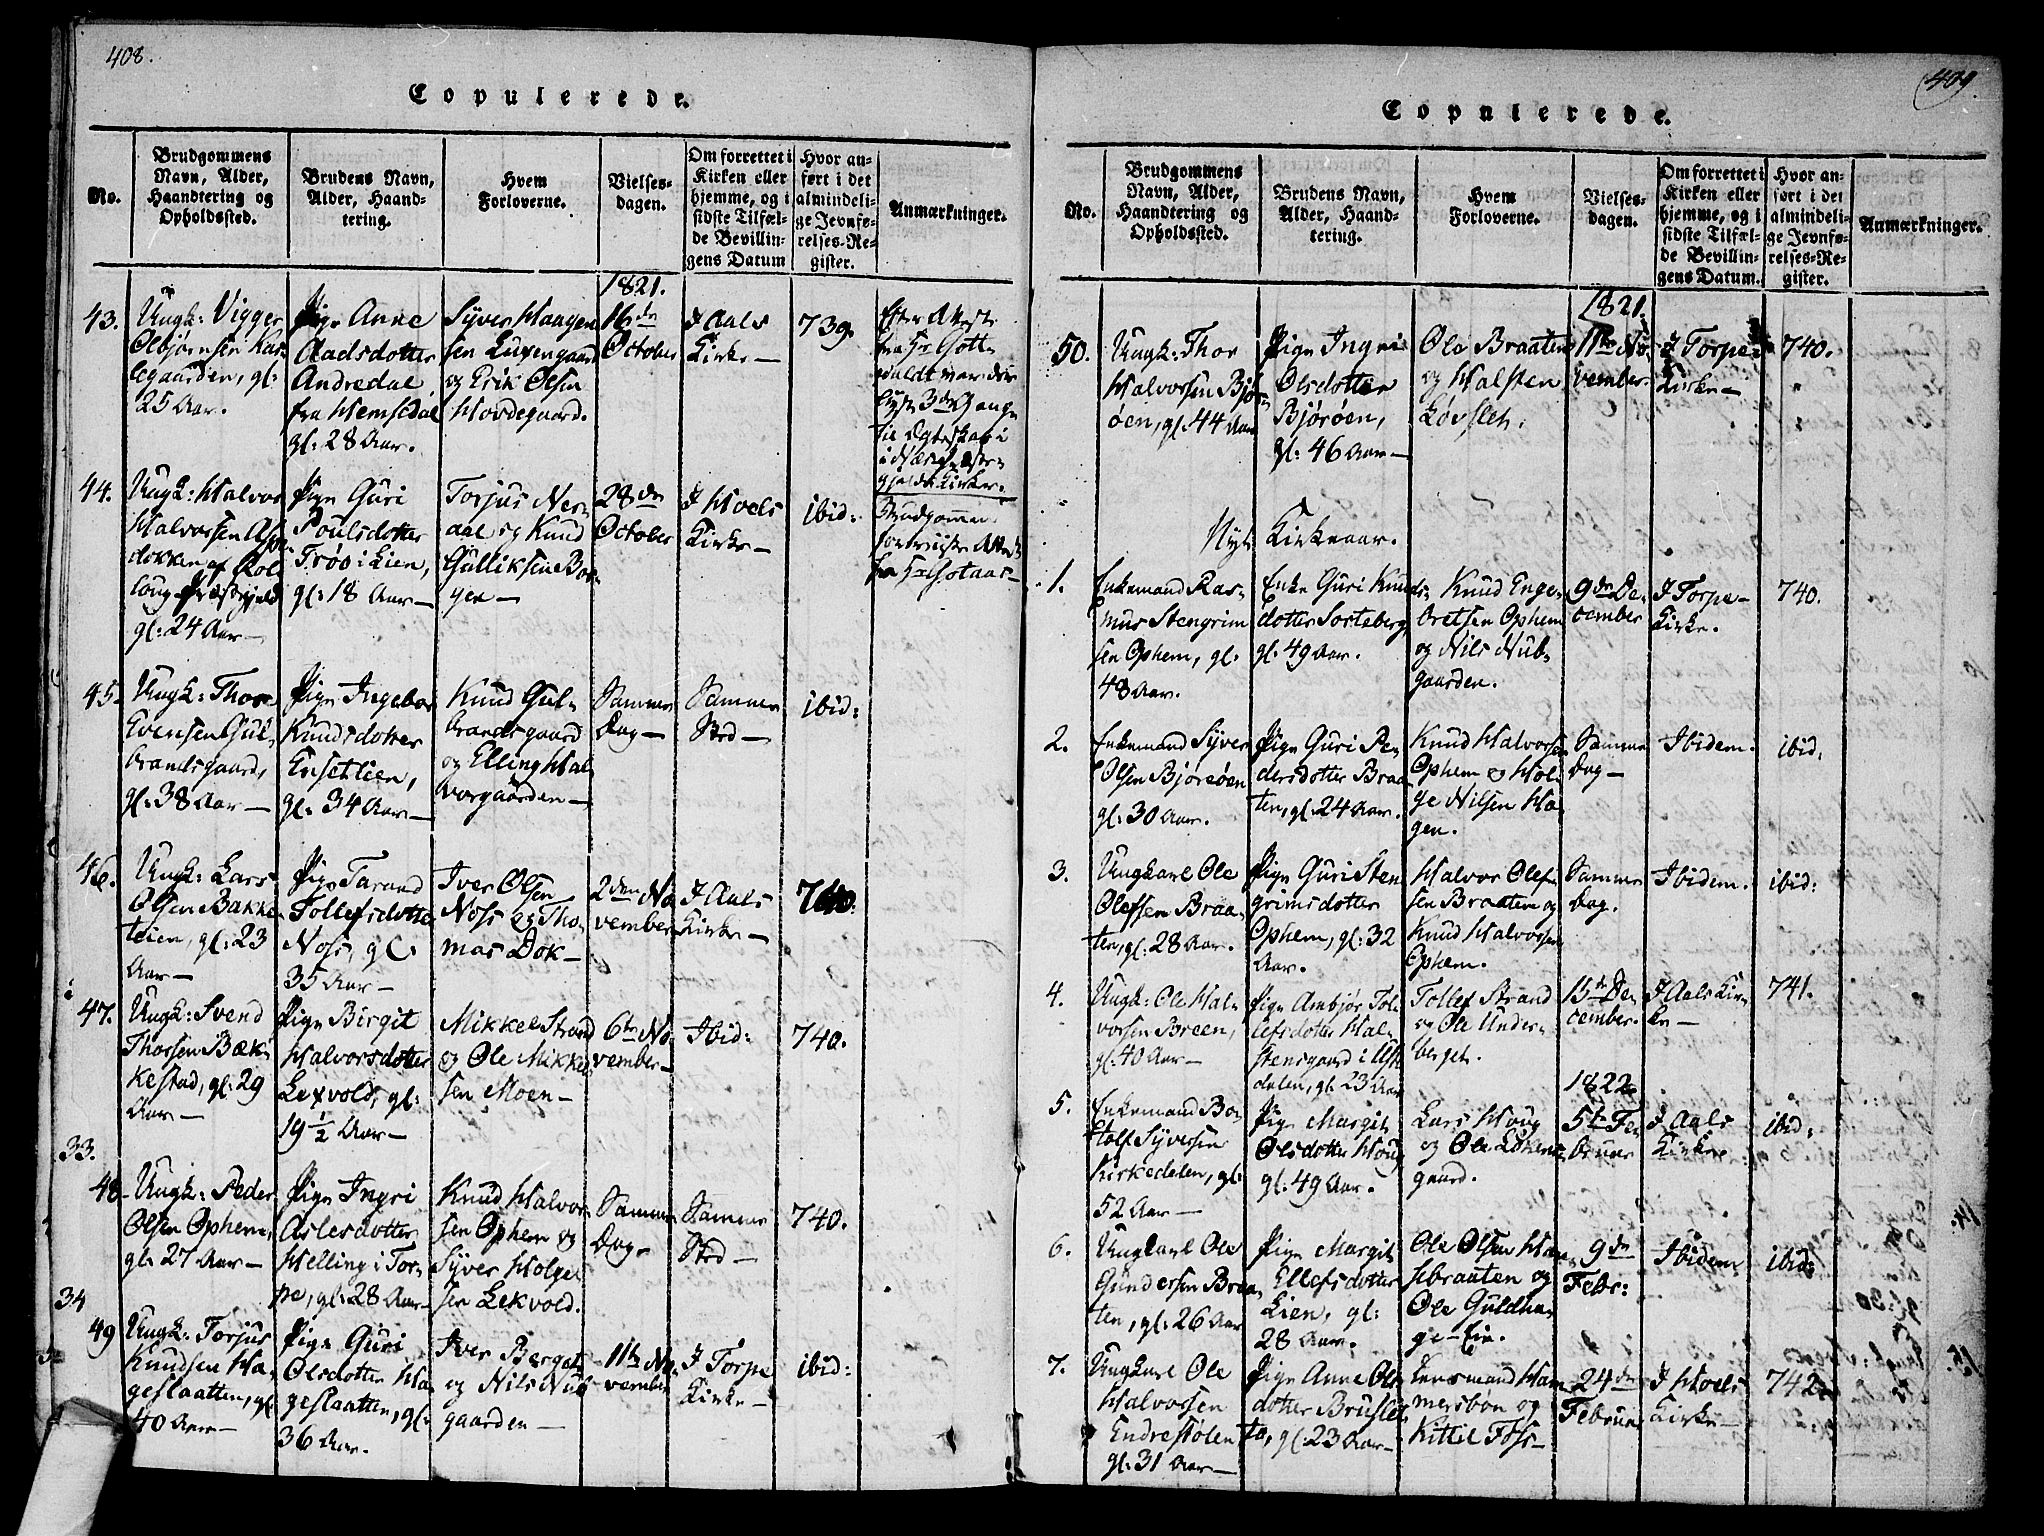 408.
Copulerede.
No.
Brudgommens
Navn, Alder,
Haandtering og
Opholdssted.
Brudens Navn,
Alder, Haand-
tering.
Hvem
Forloverne.
Vielses-
dagen.
Om forrettet i
Kirken eller
hjemme, og i
sidste Tilfæl-
de Bevillin-
gens Datum
Hvor an-
ført i det
almindeli-
ge Jevnfø-
relses-Re-
gister.
Anmærkninger.
43.
Ungk: Vigger
Olbjørnsen
gaarden, gl:
25 Aar.
Pige Anne
Aadsdotter
Andredal
fra Hemsedal
gl: 28 Aar.
Syver Haagen
sen
og Erik Olsen
Hovdegaard.
1821.
16de
October
I Aals
Kirke —
739.
44.
Ungk: Halvor
Halvorsen
dokken af
gl: 24 Aar —
Pige Guri
Poulsdotter
Trøo i Lien,
gl: 18 Aar —
Torjus Ner-
aal og Knud
Gulliksen
28de
October
I Hoels
Kirke —
ibid:
45.
Ungk: Thor
Evensen Gul-
brandsgaard,
gl: 38 Aar —
Pige Ingebor
Knudsdotter
Ensetlien,
gl: 34 Aar —
Knud Gul-
brandsgaard
og Elling Hal
vorgaarden —
Samme
Dag —
Samme
Sted —
ibid:
46.
Ungk: Lars
Olsen Bakke
teien, gl: 23
Aar —
Pige Tarand
Tollefsdotter
Noss, gl:
35 Aar —
Iver Olsen
Noss og Tho-
mas Dok —
2den No-
vember
I Aals
Kirke —
740.
47.
Ungk: Svend
Thorsen Bæk-
kestad, gl: 29
Aar —
Pige Birgit
Halvorsdotter
Lexvold, gl:
19 ½ Aar —
Mikkel Strand
og Ole Mikkel
sen Moen —
6te No-
vember —
Ibid:
740.
33.
48.
Ungk: Peder
Olsen Ophem,
gl: 27 Aar —
Pige Ingri
Aslesdotter
Helling i Tor-
pe, gl: 28 Aar —
Knud Halvor
sen Ophem og
Syver Holge
sen Lekvold.
Samme
Dag —
Samme
Sted —
740.
34
49
Ungk: Torjus
Knudsen Ha-
geslaatten, gl:
40 Aar —
Pige Guri
Olsdotter Ha-
geslaatten, gl:
36 Aar.
Iver Berget
og Nils Nub-
gaarden —
11te No-
vember
I Torpe
Kirke —
ibid:
409.
Copulerede.
No.
Brudgommens
Navn, Alder,
Haandtering og
Opholdssted.
Brudens Navn,
Alder, Haand-
tering.
Hvem
Forloverne.
Vielses-
dagen.
Om forrettet i
Kirken eller
hjemme, og i
sidste Tilfæl-
de Bevillin-
gens Datum.
Hvor an-
ført i det
almindeli-
ge Jevnfø-
relses-Re-
gister.
Anmærkninger.
50.
Ungk: Thor
Halvorsen Bjør-
øen, gl: 44 Aar
Pige Ingri
Olsdotter
Bjørøen,
gl: 46 Aar —
Ole Braaten
og Halsten
Løvslet.
1821.
11te No-
vember.
I Torpe
Kirke —
740.
Nyt Kirkeaar.
1.
Enkemand Ras-
mus Stengrim
sen Ophem, gl:
48 Aar.
Enke Guri Knuds-
dotter Sorteberg,
gl: 49 Aar.
Knud Enge-
bretsen Ophem
og Nils Nub-
gaarden.
9de De-
cember
I Torpe
Kirke.
740.
2.
Enkemand Syver
Olsen Bjøreøen
gl: 30 Aar.
Pige Guri Pe-
dersdotter Braa-
ten, gl: 24 Aar.
Knud Halvorsen
Ophem og Hol-
ge Nilsen Ha-
gen.
Samme
Dag —
Ibidem.
ibid.
3.
Ungkarl Ole
Olefsen Braa-
ten, gl: 28 Aar.
Pige Guri Sten
grimsdotter
Ophem, gl: 32
Aar.
Halvor Olef-
sen Braaten og
Knud Halvorsen
Ophem.
Samme
Dag.
Ibidem.
ibid:
4.
Ungk: Ole Hal-
vorsen Breen,
gl: 40 Aar —
Pige Ambjør Tol-
lefsdotter Hal-
stensgaard i
dalen, gl: 23 Aar
Tollef Strand
og Ole Under-
berget.
15te De-
cember.
I Aals Kir-
ke —
741.
5.
Enkemand Bo-
tolf Syversen
Kirkedelen, gl:
52 Aar —
Pige Margit
Olsdotter Houg
gl: 49 Aar.
Lars Houg
og Ole
gaard.
1822
5te Fe-
bruar
I Aals
Kirke
ibid:
6.
Ungkarl Ole
Gundersen Braa-
ten, gl: 26 Aar
Pige Margit
Ellefsdotter
Lien, gl:
28 Aar.
Ole Olsen
sebraaten og
Ole Guldha-
ge-Eie.
9de
Febr:
Ibidem
ibid:
7.
Ungkarl Ole
Halvorsen
Endrestølen
gl: 31 Aar —
Pige Anne Ols
dotter Bruslet-
to, gl: 23 Aar —
Lensmand Ham
mersbøn og
Kittil Foss —
24de
Februar
I Hoels
Kirke —
742